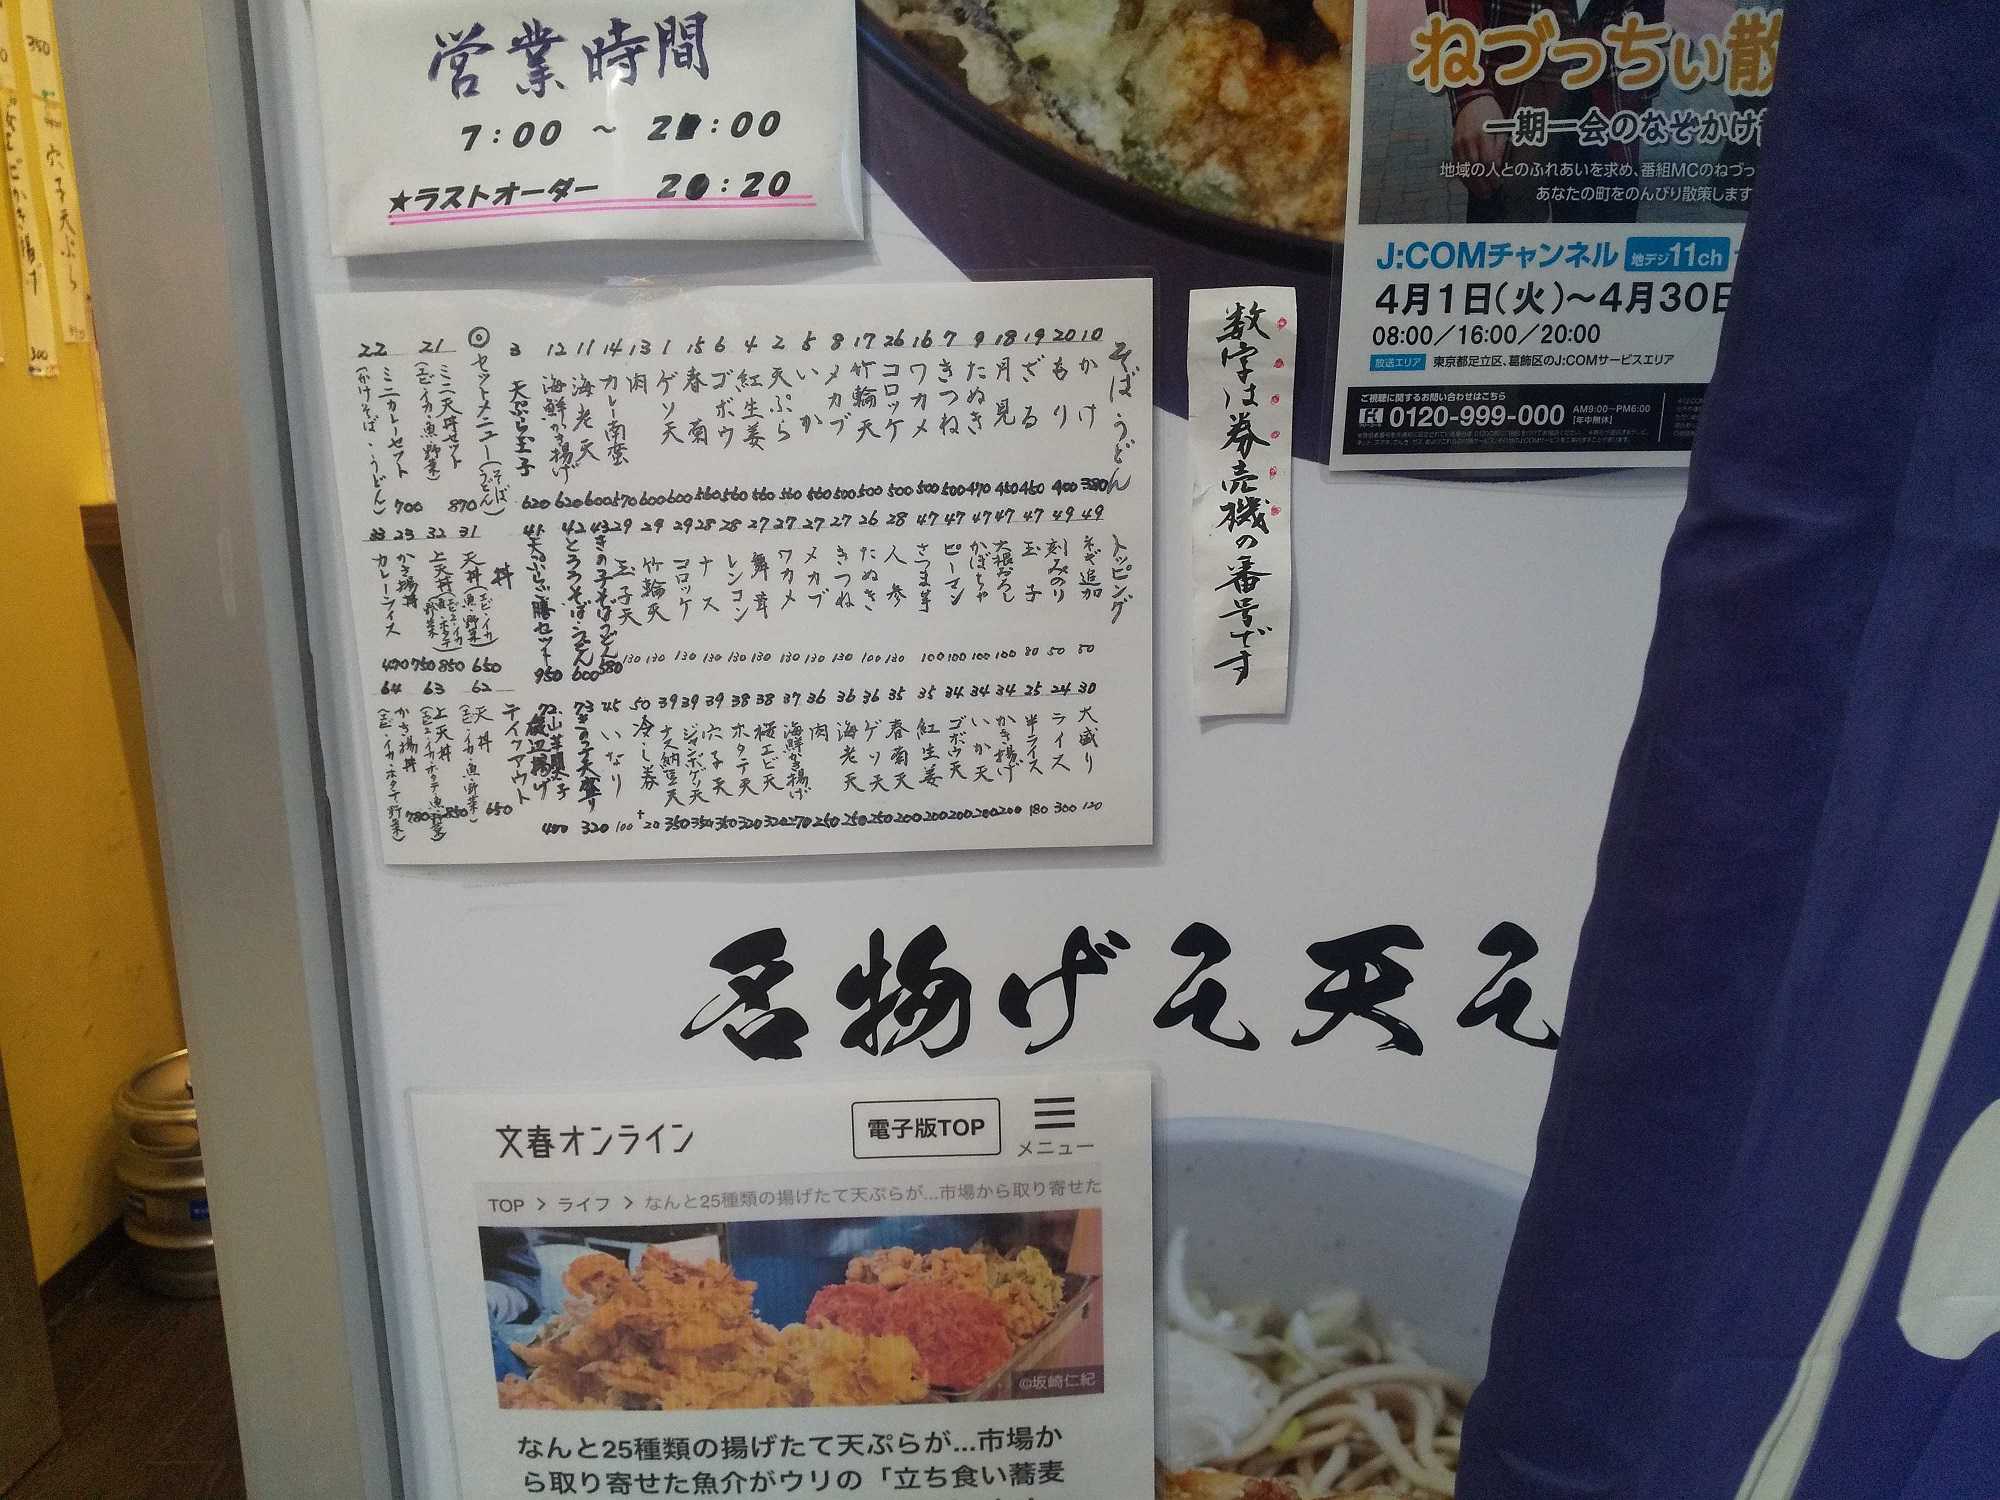 営業時間
7:00 ～ 2 :00
★ラストオーダー 2 :20
そば うどん
10 かけ 380
20 もり 400
19 ざる 450
18 月見 450
9 たぬき 470
7 きつね 500
16 ワカメ 500
26 コロッケ 500
17 竹輪天 500
8 メカブ 500
5 いか 560
2 天ぷら 560
4 紅生姜 560
6 ゴボウ 560
15 春菊 560
1 ゲソ天 600
13 肉 600
14 カレー南蛮 570
11 海老天 600
12 海鮮かき揚げ 620
3 天ぷら玉子 620
◎セットメニュー(そば うどん)
21 ミニ天丼セット 870
(エビ・イカ・魚・野菜)
22 ミニカレーセット 700
(かけそば・うどん)
トッピング
49 ネギ追加 50
49 刻みのり 50
47 玉子 80
47 大根おろし 100
47 かぼちゃ 100
47 ピーマン 100
47 さつま芋 100
28 人参 130
26 たぬき 100
27 きつね 130
27 メカブ 130
27 ワカメ 130
27 舞茸 130
28 レンコン 130
28 ナス 130
29 コロッケ 130
29 竹輪天 130
29 玉子天 130
43 きの子そばうどん 580
42 とろろそば・うどん 600
41 天ぷら膳セット 950
丼
31 天丼(エビ・イカ・魚・野菜) 650
32 上天丼(エビ・イカ・魚・ホタテ・野菜) 850
23 かき揚丼 750
33 カレーライス 470
30 大盛り 120
24 ライス 300
25 半ライス 180
34 かき揚げ 200
34 いか天 200
34 ゴボウ天 200
35 紅生姜 200
35 春菊天 200
36 ゲソ天 250
36 海老天 250
36 肉 250
37 海鮮かき揚げ 270
38 桜エビ天 320
38 ホタテ天 320
39 穴子天 350
39 ジャンボゲソ天 350
39 ナス納豆天 350
50 冷し券 +20
45 いなり 100
73 きの子天盛り 320
72 山芋 磯辺揚げ 400
テイクアウト
62 天丼 650
(エビ・イカ・魚・野菜)
63 上天丼 850
(エビ・イカ・ホタテ・魚・野菜)
64 かき揚丼 780
(エビ・イカ・ホタテ・野菜)
数字は券売機の番号です
ねづっちぃ散
一期一会のなぞかけ
地域の人とのふれあいを求め、番組MCのねづっ
あなたの町をのんびり散策します
J:COMチャンネル 地デジ11ch
4月1日(火)～4月30日
08:00／16:00／20:00
放送エリア 東京都足立区、葛飾区のJ:COMサービスエリア
ご視聴に関するお問い合わせはこちら
0120-999-000 AM9:00～PM6:00 [年中無休]
名物げそ天そ
文春オンライン 電子版TOP メニュー
TOP > ライフ > なんと25種類の揚げたて天ぷらが…市場から取り寄せた
©坂崎仁紀
なんと25種類の揚げたて天ぷらが…市場か
ら取り寄せた魚介がウリの「立ち食い蕎麦
穴子天ぷら